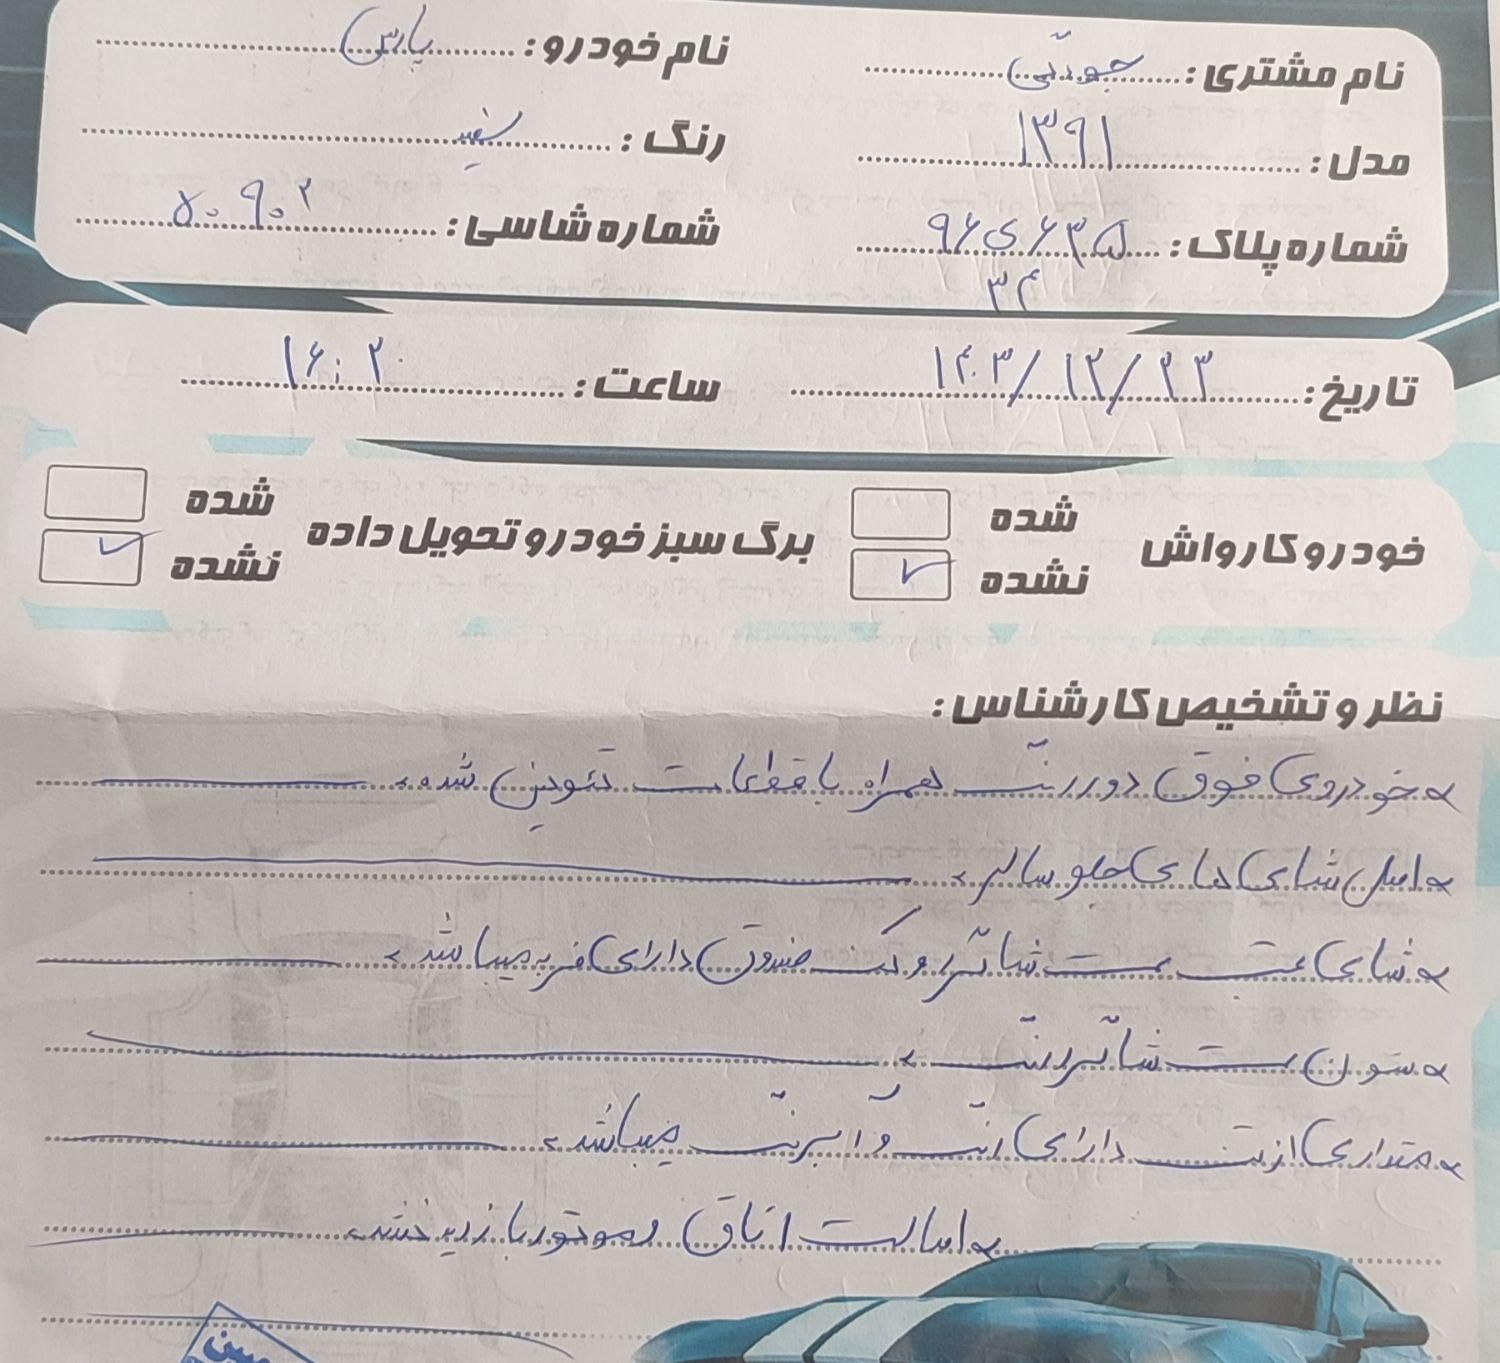 نام مشتری: جودتی نام خودرو: پارس
مدل: ۱۳۹۱ رنگ: سفید
شماره پلاک: ۹۶ی۶۳۵ شماره شاسی: ۵۰۹۰۲
۳۴
تاریخ: ۱۴۰۳/۱۲/۲۳ ساعت: ۱۶:۲۰
خودرو کارواش شده برگ سبز خودرو تحویل داده شده
نشده نشده
نظر و تشخیص کارشناس:
خودروی فوق دور رنگ همراه با قطعات تعویض شده.
اصل شاسی های جلو سالم.
شاسی عقب سمت شاگرد و کف صندوق دارای ضربه میباشد.
ستون سمت شاگرد رنگ.
مقداری از دارای رنگ و آبرنگ میباشد.
اصالت اتاق و موتور بازدید نشد.